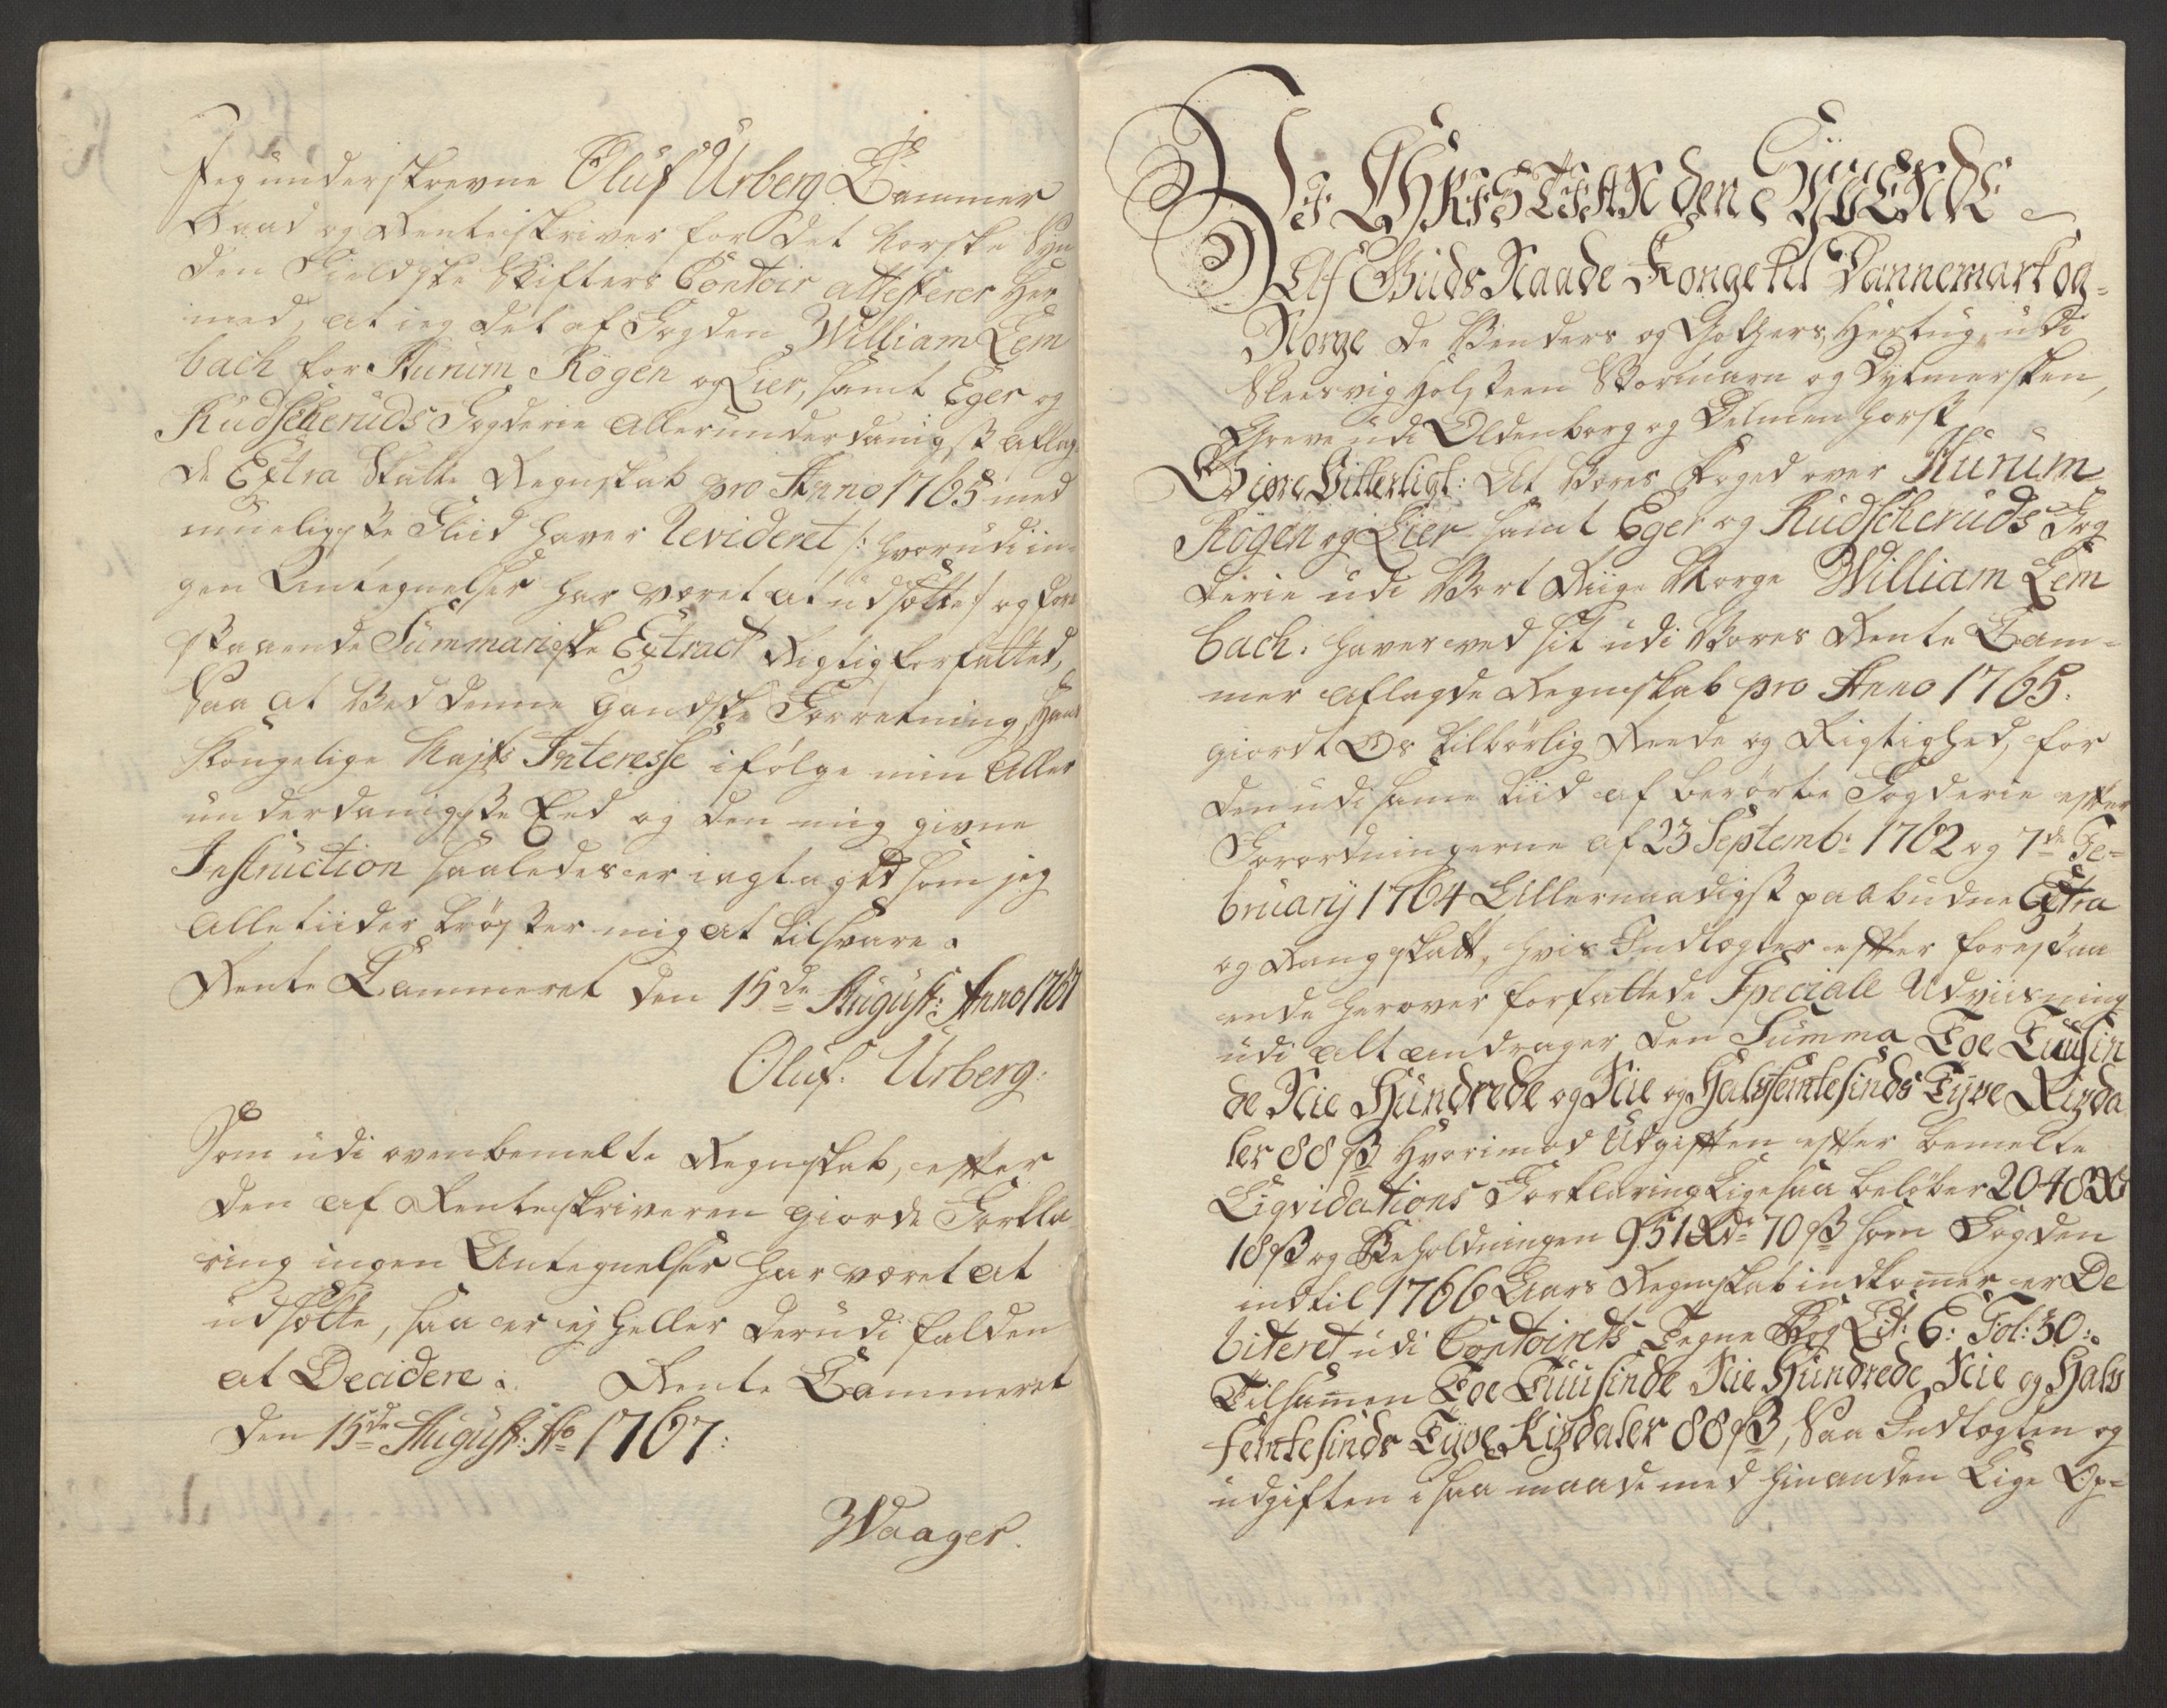 Jeg underskrevne Oluf Urberg Cammer
Raad og Renteskriver for det Norske Syn
den Fieldske Skifters Contoir attesterer Her
med, at jeg det af Fogden William Lem
bach for Hurum Røgen og Lier, samt Eger og
Rudscheruds Fogderie allerunderdanigst aflag
de Extra Skatte Regnskab pro Anno 1765 med
mueligste Fliid haver Revideret /: hvorudi in-
gen Antegnelser har været at udsætte:/ og fore
staaende Summariske Extract Rigtig forfattet,
Saa at Ved denne gandske Forretning, Hans
Kongelige Maj:ts Interesse ifølge min Aller
underdanigste Eed og den mig givne
Instruction saaledes er iagtaget som jeg
alletiider trøster mig at tilsvare.
Rente Cammeret den 15de August: Anno 1767
Oluf. Urberg.
Som udi ovenbemelte Regnskab, efter
den af Renteskriveren giorde Forkla
ring ingen Antegnelser har været at
udsætte, saa er ej heller derudi falden
at Decidere. Rente Cammeret
den 15de August: Ao 1767:
Waager.
Vi CHRISTIAN den SYVENDE
Af Guds Naade Konge til Dannemark og
Norge de Venders og Gothers, Hertug udi
Slesvig Holsteen Stormarn og Dytmersken,
Greve udi Oldenborg og Delmenhorst
Giøre Vitterligt: At Vores Foged over Hurum
Røgen og Lier samt Eger og Rudscheruds Fog
derie udi Vort Riige Norge William Lem
bach. haver ved sit udi Vores Rente Cam-
mer aflagde Regnskab pro Anno 1765.
giordt Os tilbørlig Reede og Rigtighed, for
den udi samme tiid af berørte Fogderie efter
Forordningerne af 23 Septemb: 1762 og 7de Fe-
bruarij 1764 Allernaadigst paabudne Extra
og Rangskatt, hvis Indtægter efter forestaa
ende herover forfattede Speciale Udviisning
udi alt andrager den Summa Toe Tuusin
de Nie Hundrede og Nie og Halvfemtesinds Tyve Rigsda
ler 88 ß Hvorimod Udgiften efter bemelte
Liqvidations Forklaring Ligesaa beløber 2048 Rd
18 ß og Beholdningen 951 Rd 70 ß som Fogden
indtil 1766 Aars Regnskab indkommer er De
biteret udi Contoirets Tegne Bog Lit: E: Fol: 30:
Tilsammen Toe Tuusinde Nie Hundrede Nie og Halv
femtesinds Tyve Rigsdaler 88 ß, Saa Indtægten og
udgiften i saa maade med hinanden Lige Op-